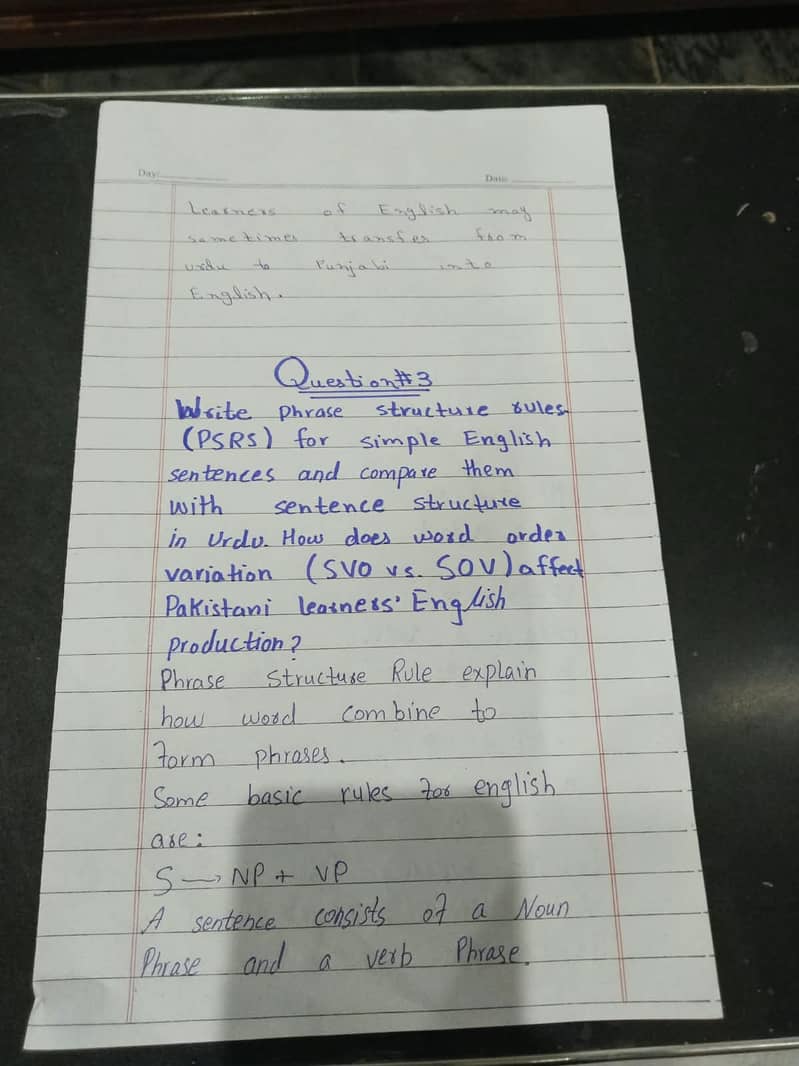 Day:
Date:
Learners of English may
sometimes transfer from
urdu to Punjabi into
English.
Question#3
Write phrase structure rules
(PSRS) for simple English
sentences and compare them
with sentence structure
in Urdu. How does word order
variation (SVO vs. SOV) affect
Pakistani learners' English
production?
Phrase Structure Rule explain
how word combine to
form phrases.
Some basic rules for english
are:
S → NP + VP
A sentence consists of a Noun
Phrase and a verb Phrase.